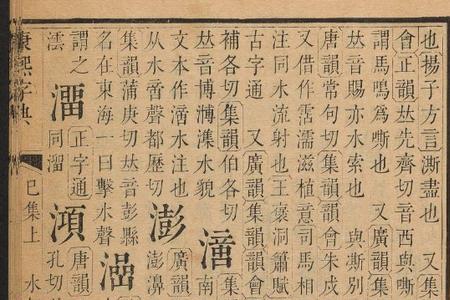 也揚子方言澌盡也 又集
會正韻𠀤先齊切音西與嘶
謂馬鳴爲嘶也 又廣韻集
𠀤音賜亦水索也 與澌別
唐韻常句切集韻韻會朱戍
又借作霔濡滋植意司馬相
注同水流射也王褒洞簫賦
古字通 又廣韻集韻韻會
補各切集韻伯各切 集
𠀤音博水貌 南
文本作水注也 廣韻
从水啻聲都歷切 澎 澎濞
集韻蒲庚切𠀤音彭縣
名在東海一曰擊水聲
謂之 澑 正字通 澒 唐韻
澐 同溜 孔切
康熙字典 巳集上 水